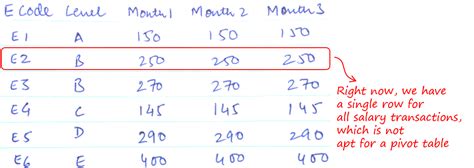 E Code Level Month 1 Month 2 Month 3
E1 A 150 150 150
E2 B 250 250 250
E3 B 270 270 270
E4 C 145 145 145
E5 D 290 290 290
E6 E 400 400 400
Right now, we have
a single row for
all salary transactions,
which is not
apt for a pivot table